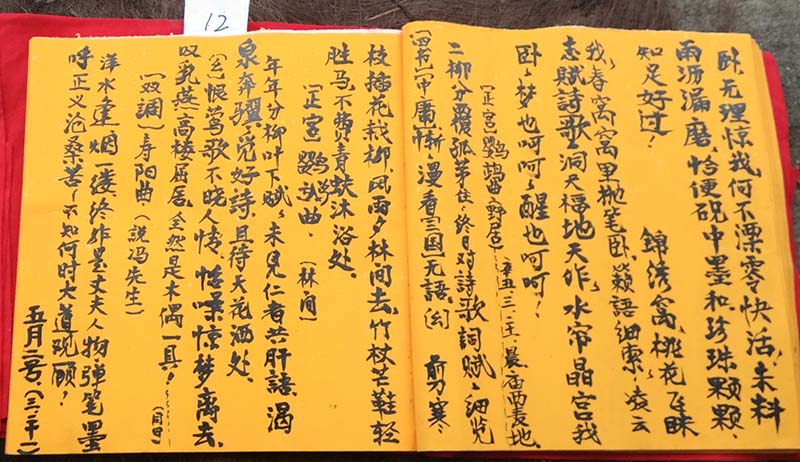 12
卧，无理惊我何不漂零快活，未料
雨沥漏磨，恰便砚中墨和珍珠颗颗，
知足好过！
锦绣窝，桃花飞
我，春窝窝里抛笔卧，籁语细索，凌云
志赋詩歌，洞天福地天作，水帘晶宫我
卧，梦也呵呵，醒也呵呵！
〔正宫〕鹦鹉曲（野居）
二柳分覆孤茅住，终日对詩歌詞賦，细览
〔四书〕〔中庸〕惭，漫看三国无語。〔幺〕 剪寒
枝插花栽柳，风雨夕林间去，竹杖芒鞋轻
胜马，不费青蚨沐浴处。
〔正宫〕鹦鹉曲，（林间）
年年分柳叶下赋，未見仁者共肝語，渴
泉奔骥，觉好詩，且待天花洒处。
〔幺〕恨莺歌不晓人情，惊梦离去，
叹乳燕高楼屈居，全然是木偶一具！
（同日）
〔双调〕寿阳曲（说冯先生）
洋水重烟一缕，终非墨丈夫人物，弹笔墨
呼正义沧桑苦，不知何时大道观顾！
五月二号（三、二十一）